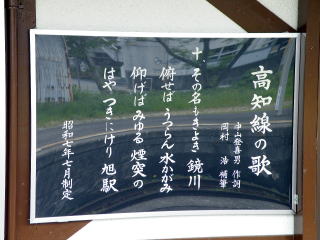 高知線の歌
中山登喜男 作詞
岡村 浩 補筆
十、その名もきよき 鏡川
俯せば うつらん 水かがみ
仰げば みゆる 煙突の
はや つきにけり 旭駅
昭和七年七月制定